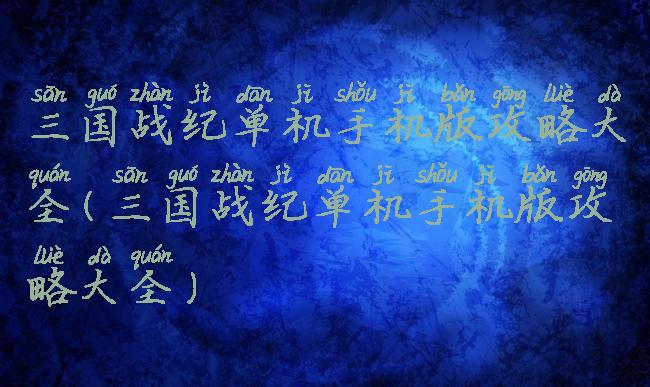 sān guó zhàn jì dān jī shǒu jī bǎn gōng lüè dà
三国战纪单机手机版攻略大
quán sān guó zhàn jì dān jī shǒu jī bǎn gōng
全(三国战纪单机手机版攻
lüè dà quán
略大全)